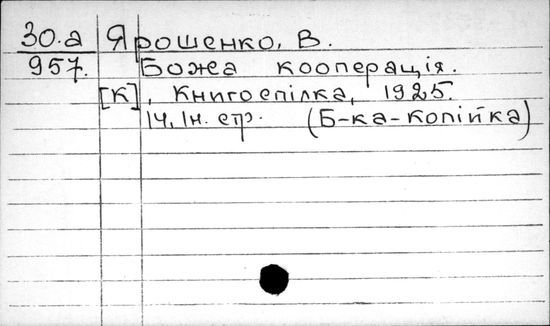 30.а Ярошенко, В.
957. Божа кооперація.
[К], Книгоспілка, 1925.
14, 1н. стр. (Б-ка-копійка)